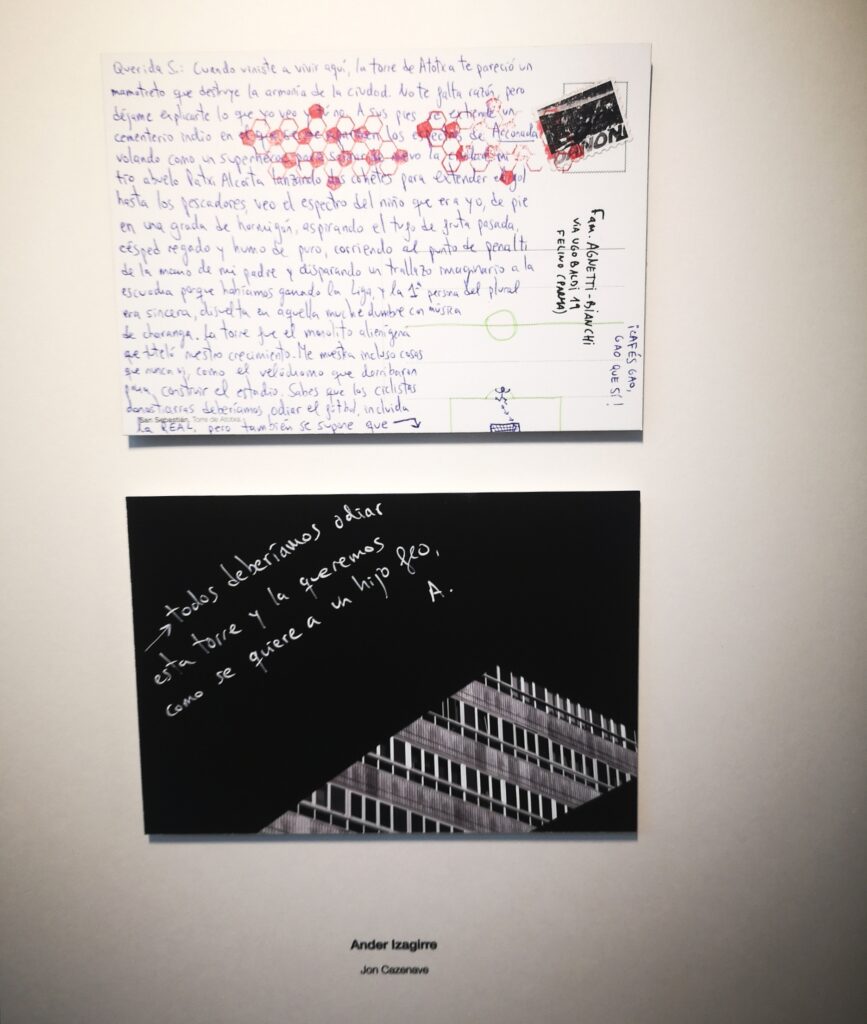 Querida S.: Cuando viniste a vivir aquí, la torre de Atotxa te pareció un
mamotreto que destruye la armonía de la ciudad. No te falta razón, pero
déjame explicarte lo que yo veo y tú no. A sus pies se extiende un
cementerio indio en el que los espectros de Arconada
volando como un superhéroe para la mi
tío abuelo Patxi Alcorta lanzando dos cohetes para extender el gol
hasta los pescadores, veo el espectro del niño que era yo, de pie
en una grada de hormigón, aspirando el tufo de fruta pasada,
césped regado y humo de puro, corriendo al punto de penalti
de la mano de mi padre y disparando un trallazo imaginario a la
escuadra porque habíamos ganado la Liga, y la 1ª persona del plural
era sincera, disuelta en aquella muchedumbre con música
de charanga. La torre fue el monolito alienígena
que tuteló nuestro crecimiento. Me muestra incluso cosas
que nunca vi, como el velódromo que derribaron
para construir el estadio. Sabes que los ciclistas
donostiarras deberíamos odiar el fútbol, incluida
la REAL, pero también se supone que →
San Sebastián, Torre de Atotxa
DANON
Fam. AGNETTI-BIANCHI
VIA UGO BALDI 19
FELINO (PARMA)
¡CAFÉS GAO,
GAO QUE SÍ!
→ todos deberíamos odiar
esta torre y la queremos
como se quiere a un hijo feo,
A.
Ander Izagirre
Jon Cazenave